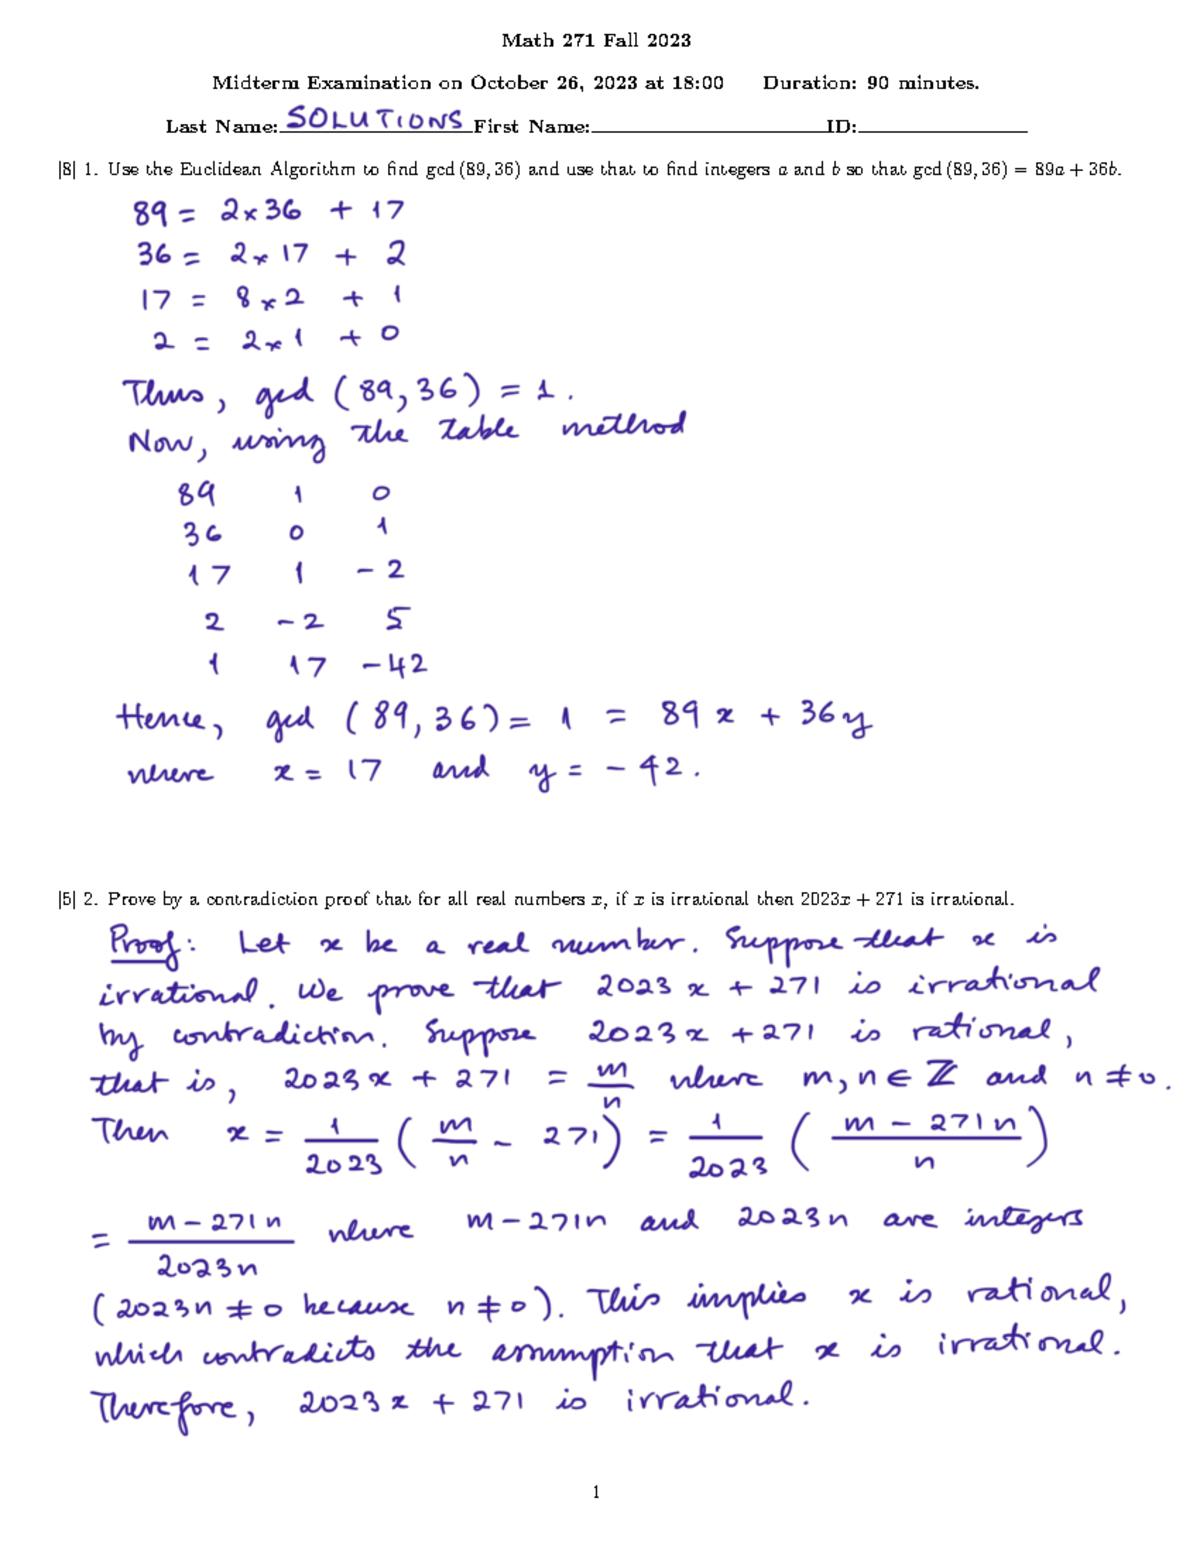 Math 271 Fall 2023
Midterm Examination on October 26, 2023 at 18:00 Duration: 90 minutes.
Last Name: SOLUTIONS First Name: ID:
[8] 1. Use the Euclidean Algorithm to find gcd (89, 36) and use that to find integers a and b so that gcd (89, 36) = 89a + 36b.
89 = 2×36 + 17
36 = 2×17 + 2
17 = 8×2 + 1
2 = 2×1 + 0
Thus, gcd (89, 36) = 1.
Now, using the table method
89 1 0
36 0 1
17 1 -2
2 -2 5
1 17 -42
Hence, gcd (89, 36) = 1 = 89x + 36y
where x = 17 and y = -42.
[5] 2. Prove by a contradiction proof that for all real numbers x, if x is irrational then 2023x + 271 is irrational.
Proof: Let x be a real number. Suppose that x is
irrational. We prove that 2023x + 271 is irrational
by contradiction. Suppose 2023x + 271 is rational,
that is, 2023x + 271 = m/n where m, n ∈ ℤ and n ≠ 0.
Then x = 1/2023 (m/n - 271) = 1/2023 ((m - 271n)/n)
= (m - 271n)/2023n where m - 271n and 2023n are integers
(2023n ≠ 0 because n ≠ 0). This implies x is rational,
which contradicts the assumption that x is irrational.
Therefore, 2023x + 271 is irrational.
1